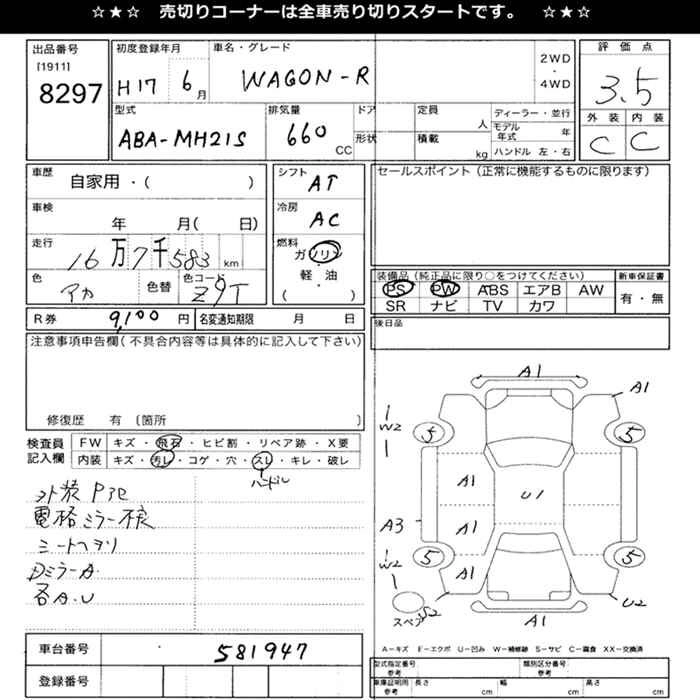 ☆★☆ 売切りコーナーは全車売り切りスタートです。 ☆★☆
出品番号
[1911]
8297
初度登録年月
H17 6月
車名・グレード
WAGON-R
2WD
・
4WD
評価点
3.5
型式
ABA-MH21S
排気量
660 CC
ドア
形状
定員
人
積載
kg
ディーラー・並行
モデル年式 年
ハンドル 左・右
外装 内装
C C
車歴
自家用・( )
車検
年 月( 日)
走行
16万7千583 km
色
アカ
色替
色コード
Z9T
シフト
AT
冷房
AC
燃料
ガソリン
軽・油
( )
セールスポイント(正常に機能するものに限ります)
装備品(純正品に限り○をつけてください)
PS PW ABS エアB AW
SR ナビ TV カワ
新車保証書
有・無
R券 9,100 円 名変通知期限 月 日
後日品
注意事項申告欄(不具合内容等は具体的に記入して下さい)
修復歴 有〔箇所 〕
検査員記入欄
FW キズ・飛石・ヒビ割・リペア跡・X要
内装 キズ・汚レ・コゲ・穴・スレ・キレ・破レ
ハンドル
外装
電格ミラー不良
シートヘタリ
DミラーA
各A.U
A1
A1
W2
5
5
A1
U1
A3
A1
W2
5
5
A1
スペア
S2
A1
U2
A-キズ F-エクボ U-凹み W-補修跡 S-サビ C-腐食 XX-交換済
車台番号 581947
登録番号
型式指定番号
参考
類別区分番号
参考
車庫証明用
参考
長さ cm 幅 cm 高さ cm